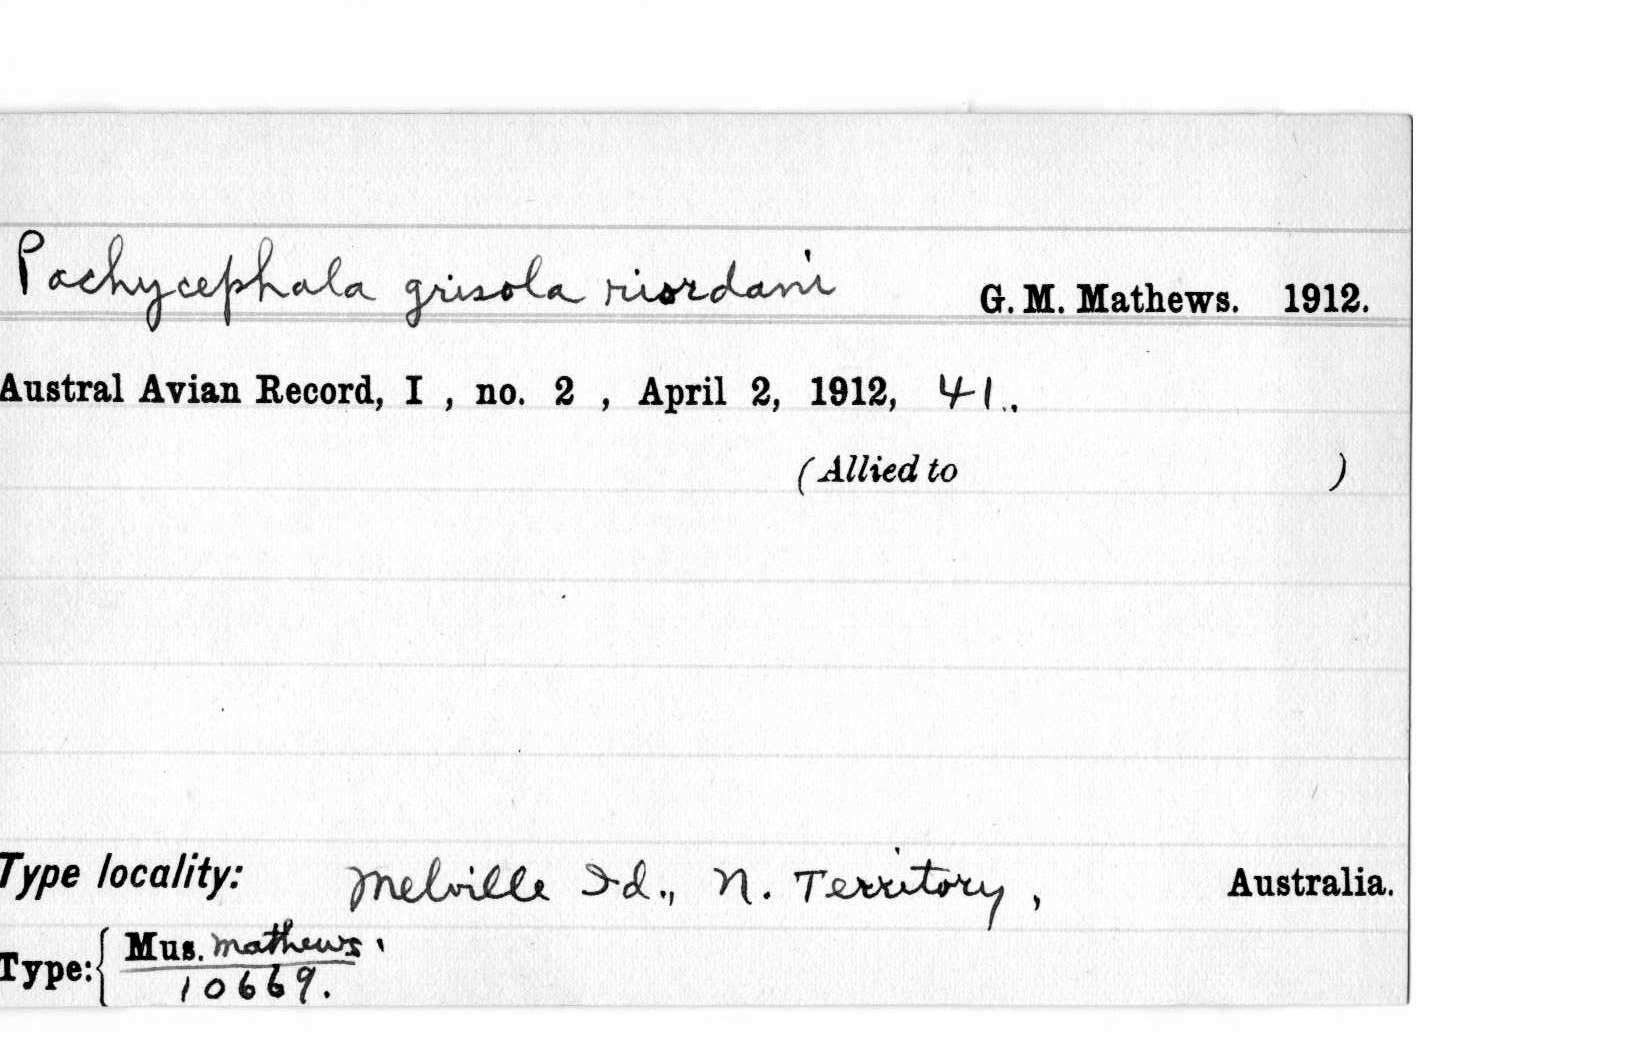 Pachycephala grisola riordani G. M. Mathews. 1912.
Austral Avian Record, I , no. 2 , April 2, 1912, 41..
(Allied to )
Type locality: Melville Id., N. Territory, Australia.
Type: { Mus. Mathews.
10669.